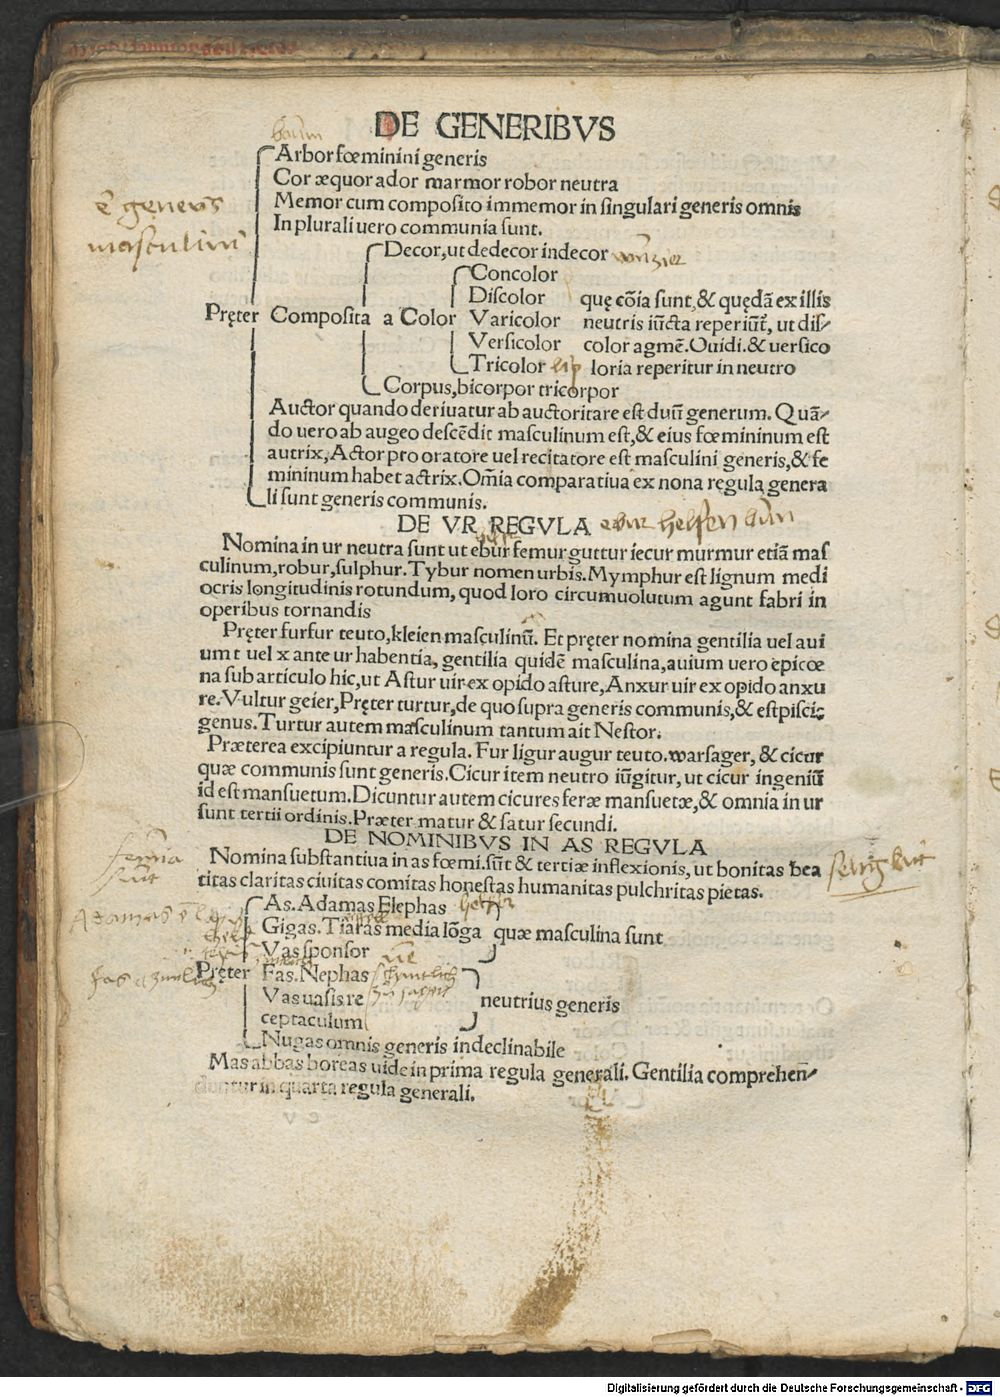 DE GENERIBVS
Arbor fœminini generis
Cor æquor ador marmor robor neutra
Memor cum composito immemor in singulari generis omnis
In plurali uero communia sunt.
Decor, ut dedecor indecor
Concolor
Discolor quę cōia sunt, & quędā ex illis
Pręter Composita a Color Varicolor neutris iūcta reperiūt, ut dis/
Versicolor color agmē. Ouidi. & uersico
Tricolor loria reperitur in neutro
Corpus, bicorpor tricorpor
Auctor quando deriuatur ab auctoritate est duū generum. Quā/
do uero ab augeo descēdit masculinum est, & eius fœmininum est
autrix, Actor pro oratore uel recitatore est masculini generis, & fe
mininum habet actrix. Oīa comparatiua ex nona regula genera
li sunt generis communis.
DE VR REGVLA
Nomina in ur neutra sunt ut ebur femur guttur iecur murmur etiā mas
culinum, robur, sulphur. Tybur nomen urbis. Mymphur est lignum medi
ocris longitudinis rotundum, quod loro circumuolutum agunt fabri in
operibus tornandis
Pręter furfur teuto, kleien masculinū. Et pręter nomina gentilia uel aui
um t uel x ante ur habentia, gentilia quidē masculina, auium uero epicœ
na sub articulo hic, ut Astur uir ex opido asture, Anxur uir ex opido anxu
re. Vultur geier, Pręter turtur, de quo supra generis communis, & est piscis
genus. Turtur autem masculinum tantum ait Nestor.
Præterea excipiuntur a regula. Fur ligur augur teuto. warsager, & cicur
quæ communis sunt generis. Cicur item neutro iūgitur, ut cicur ingeniū
id est mansuetum. Dicuntur autem cicures feræ mansuetæ, & omnia in ur
sunt tertii ordinis. Præter matur & satur secundi.
DE NOMINIBVS IN AS REGVLA
Nomina substantiua in as fœmi. sūt & tertiæ inflexionis, ut bonitas bea
titas claritas ciuitas comitas honestas humanitas pulchritas pietas.
As. Adamas Elephas
Gigas. Tiaras media lōga quæ masculina sunt
Vas sponsor
Pręter Fas. Nephas
Vas uasis re neutrius generis
ceptaculum
Nugas omnis generis indeclinabile
Mas abbas boreas uide in prima regula generali. Gentilia comprehen/
duntur in quarta regula generali.
Digitalisierung gefördert durch die Deutsche Forschungsgemeinschaft - DFG